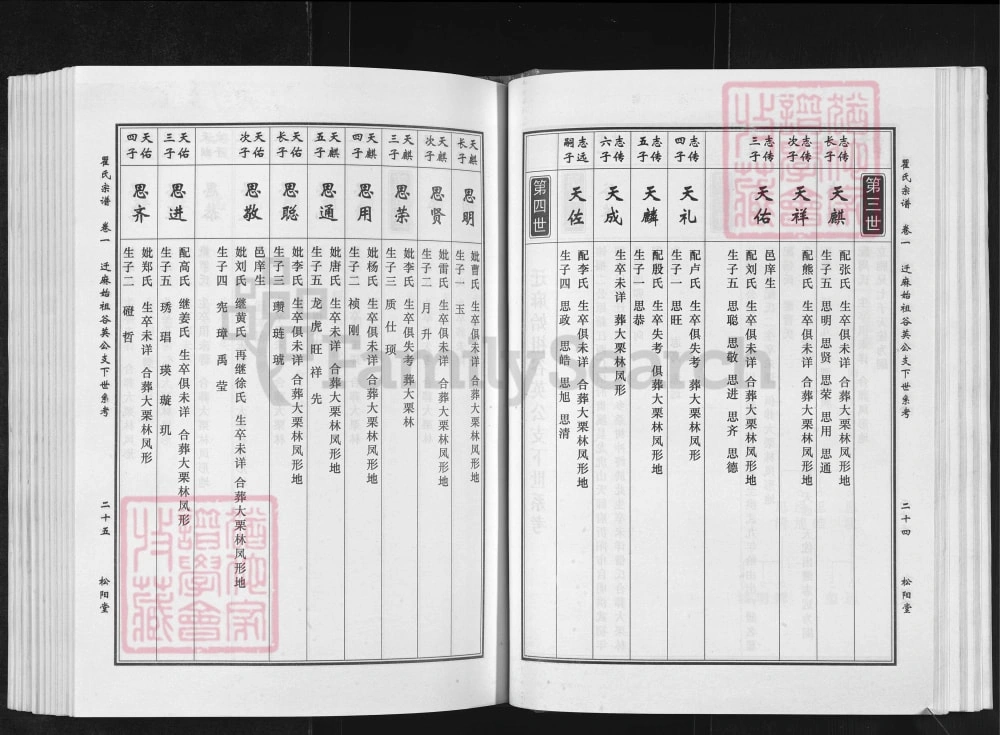 瞿氏宗谱 卷一 迁麻始祖谷英公支下世系考 二十四 松阳堂
第三世
志传长子
天麒
配张氏 生卒俱未详 合葬大栗林凤形
生子五 思明 思贤 思荣 思用 思通
志传次子
天祥
配熊氏 生卒俱未详 合葬大栗林凤形地
志传三子
天佑
邑庠生
配刘氏 生卒俱未详 合葬大栗林凤形地
生子五 思聪 思敬 思进 思齐 思德
志传四子
天礼
配卢氏 生卒俱失考 葬大栗林凤形
生子一 思旺
志传五子
天麟
配殷氏 生卒失考 俱葬大栗林凤形
生子一 思恭
志传六子
天成
生卒未详 葬大栗林凤形
志远嗣子
天佐
配李氏 生卒俱未详 合葬大栗林凤形地
生子四 思政 思皓 思旭 思清
第四世
天麒长子
思明
妣曹氏 生卒俱未详 合葬大栗林凤形地
生子一 玉
天麒次子
思贤
妣雷氏 生卒俱未详 合葬大栗林凤形地
生子二 月 升
天麒三子
思荣
妣李氏 生卒俱失考 葬大栗林
生子三 质 仕 顼
天麒四子
思用
妣杨氏 生卒俱未详 合葬大栗林凤形地
生子二 祯 刚
天麒五子
思通
妣唐氏 生卒未详 合葬大栗林凤形地
生子五 龙 虎 旺 祥 先
天佑长子
思聪
妣李氏 生卒俱未详 合葬大栗林凤形地
生子三 瓒 琏 琥
天佑次子
思敬
邑庠生
妣刘氏 继黄氏 再继徐氏 生卒未详 合葬大栗林凤形地
生子四 宪 璋 禹 莹
天佑三子
思进
配高氏 继姜氏 生卒俱未详 合葬大栗林凤形
生子五 琇 琩 瑛 璇 玑
天佑四子
思齐
妣郑氏 生卒未详 合葬大栗林凤形
生子二 磴 哲
瞿氏宗谱 卷一 迁麻始祖谷英公支下世系考 二十五 松阳堂
FamilySearch